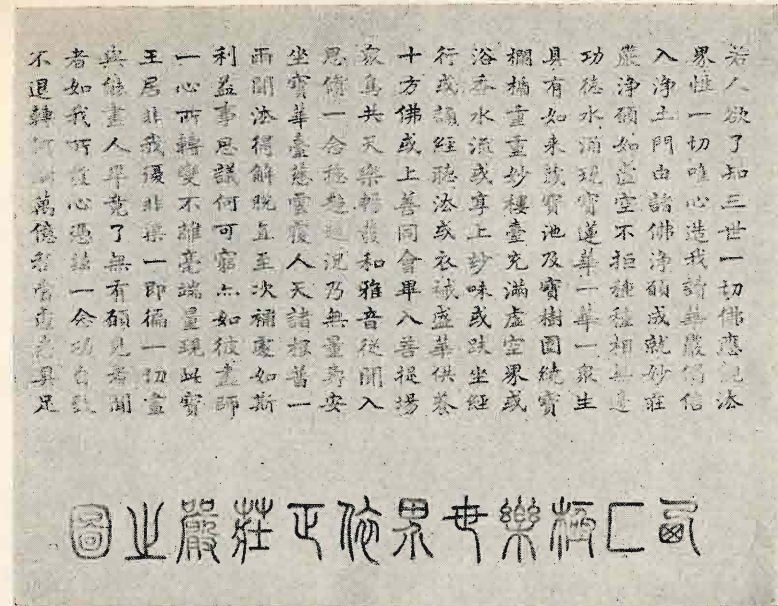 若人欲了知三世一切佛應觀法
界性一切唯心造我讀華嚴偈信
入淨土門由諸佛淨願成就妙莊
嚴淨願如虛空不拒種種相無邊
功德水涌現寶蓮華一華一衆生
具有如来寶池及寶樹圍繞寶
欄楯重重妙樓臺充滿虛空界或
浴香水流或享上妙味或趺坐經
行或讀經聽法或衣祴盛華供養
十方佛或上善同會畢入菩提場
衆鳥共天樂轉發和雅音從聞入
思脩一念極超越況乃無量壽安
坐寶華臺慈雲覆人天諸根普一
雨聞法得解脫直至次補處如斯
利益事思議何可窮亦如彼畫師
一心所轉變不離毫端量現此寶
王居非我復非渠一即徧一切畫
與能畫人畢竟了無有願見者聞
者如我所心憑茲一念功自致
不退轉萬億具足
西方極樂世界依正莊嚴之圖